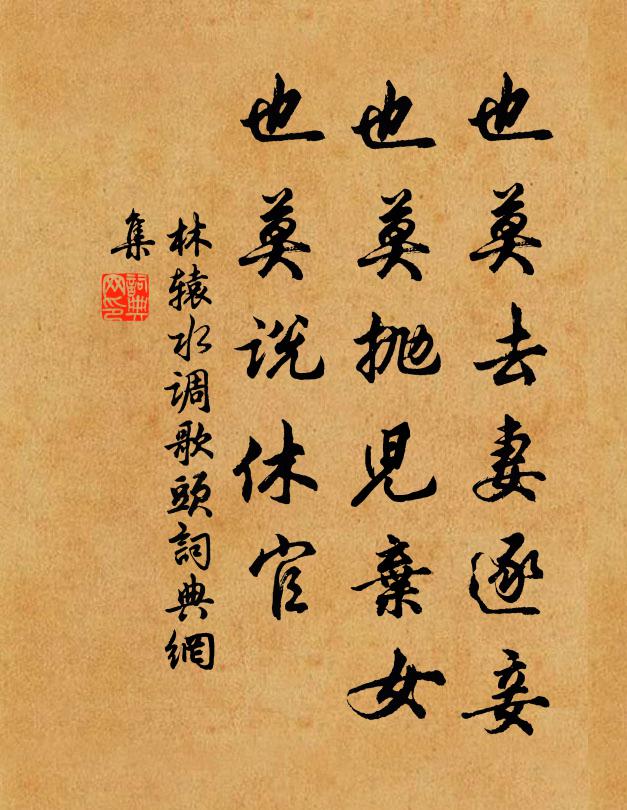 也莫去妻逐妾
也莫抛児棄女
也莫说休官
林辕水调歌頭詞典網
集
詞典
网印